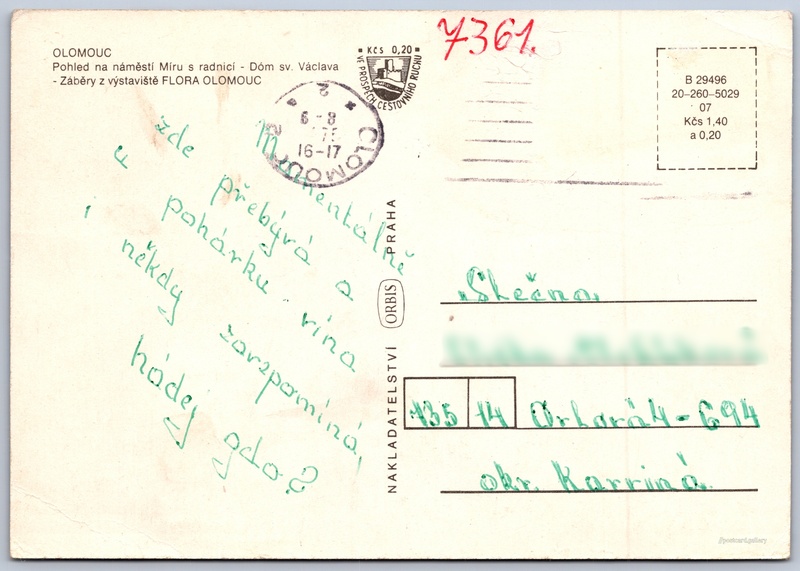 OLOMOUC
Pohled na náměstí Míru s radnicí - Dóm sv. Václava
- Záběry z výstaviště FLORA OLOMOUC
Kčs 0,20
VE PROSPĚCH CESTOVNÍHO RUCHU
7361.
B 29496
20-260-5029
07
Kčs 1,40
a 0,20
OLOMOUC 2
6-8
16-17
2
Momentálně
zde přebývá a
u pohárku vína
i někdy zavzpomíná,
hádej gdo?
NAKLADATELSTVÍ ORBIS PRAHA
Slečna
135 14 Orlová 4 - 694
okr. Karviná